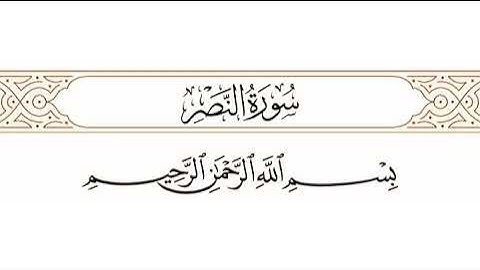 سُورَةُ النَّصْرِ
بِسْمِ ٱللَّهِ ٱلرَّحْمَٰنِ ٱلرَّحِيمِ